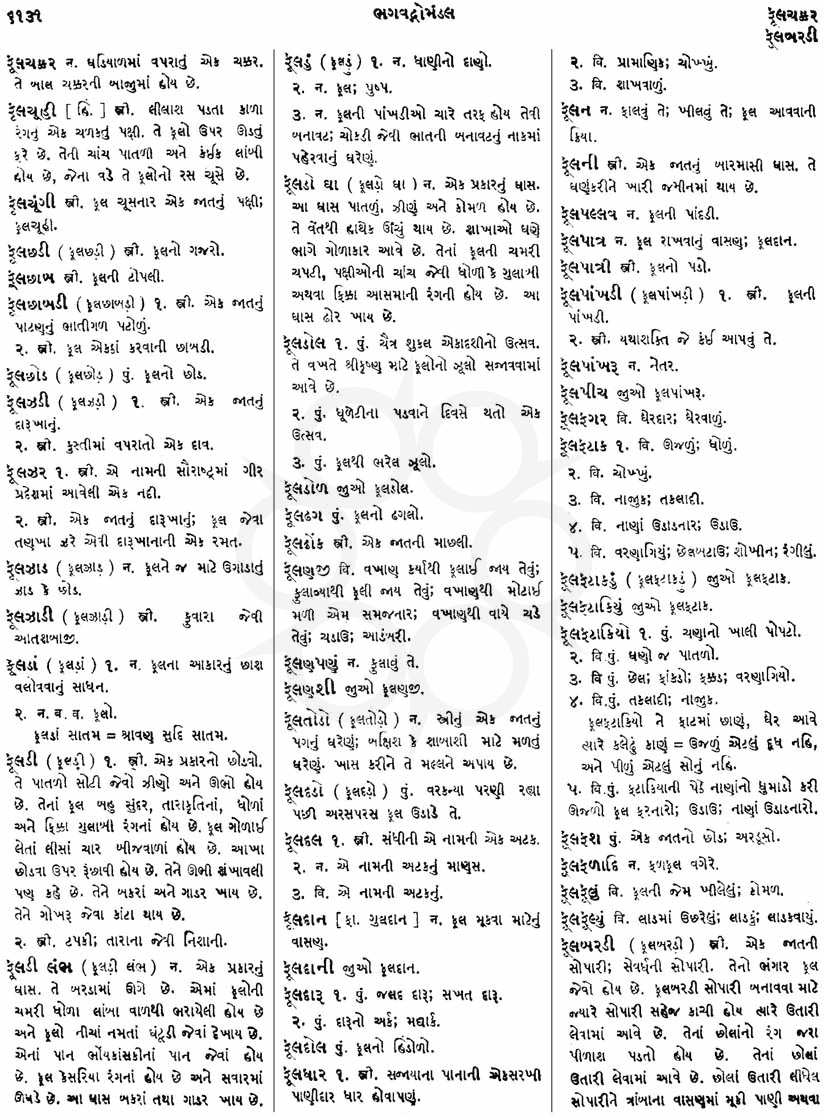 ૬૧૩૧
ભગવદ્ગોમંડલ
ફૂલચક્કર
ફૂલબરડી
ફૂલચક્કર ન. ઘડિયાળમાં વપરાતું એક ચક્કર.
તે બાલ ચક્કરની બાજુમાં હોય છે.
ફૂલચૂહી [ હિં. ] સ્ત્રી. લીલાશ પડતા કાળા
રંગનું એક ચળકતું પક્ષી. તે ફૂલો ઉપર ઊડતું
ફરે છે. તેની ચાંચ પાતળી અને કંઈક લાંબી
હોય છે, જેના વડે તે ફૂલોનો રસ ચૂસે છે.
ફૂલચૂંગી સ્ત્રી. ફૂલ ચૂસનાર એક જાતનું પક્ષી;
ફૂલચૂહી.
ફૂલછડી ( ફૂલછડી઼ ) સ્ત્રી. ફૂલનો ગજરો.
ફૂલછાબ સ્ત્રી. ફૂલની ટોપલી.
ફૂલછાબડી ( ફૂલછાબડી઼ ) ૧. સ્ત્રી. એક જાતનું
પાટણનું ભાતીગળ પટોળું.
૨. સ્ત્રી. ફૂલ એકઠાં કરવાની છાબડી.
ફૂલછોડ ( ફૂલછોડ઼ ) પું. ફૂલનો છોડ.
ફૂલઝડી ( ફૂલઝડી઼ ) ૧. સ્ત્રી. એક જાતનું
દારૂખાનું.
૨. સ્ત્રી. કુસ્તીમાં વપરાતો એક દાવ.
ફૂલઝર ૧. સ્ત્રી. એ નામની સૌરાષ્ટ્રમાં ગીર
પ્રદેશમાં આવેલી એક નદી.
૨. સ્ત્રી. એક જાતનું દારૂખાનું; ફૂલ જેવા
તણખા ઝરે એવી દારૂખાનાની એક રમત.
ફૂલઝાડ ( ફૂલઝાડ઼ ) ન. ફૂલને જ માટે ઉગાડાતું
ઝાડ કે છોડ.
ફૂલઝાડી ( ફૂલઝાડી઼ ) સ્ત્રી. ફુવારા જેવી
આતશબાજી.
ફૂલડાં ( ફૂલડાં઼ ) ૧. ન. ફૂલના આકારનું છાશ
વલોવવાનું સાધન.
૨. ન. બ. વ. ફૂલો.
ફૂલડાં સાતમ = શ્રાવણ સુદિ સાતમ.
ફૂલડી ( ફૂલડી઼ ) ૧. સ્ત્રી. એક પ્રકારનો છોડવો.
તે પાતળો સોટી જેવો ઝીણો અને ઊભો હોય
છે. તેનાં ફૂલ બહુ સુંદર, તારાકૃતિનાં, ધોળાં
અને ફિક્કા ગુલાબી રંગનાં હોય છે. ફૂલ ગોળાઈ
લેતાં લીસાં ચાર બીજવાળાં હોય છે. આખા
છોડવા ઉપર રૂંછાવી હોય છે. તેને ઊભી શંખાવલી
પણ કહે છે. તેને બકરાં અને ગાડર ખાય છે.
તેને ગોખરૂ જેવા કાંટા થાય છે.
૨. સ્ત્રી. ટપકી; તારાના જેવી નિશાની.
ફૂલડી લંભ ( ફૂલડી઼ લંભ ) ન. એક પ્રકારનું
ઘાસ. તે બરડામાં ઊગે છે. એમાં ફૂલોની
ચમરી ધોળા લાંબા વાળથી ભરાયેલી હોય છે
અને ફૂલો નીચાં નમતાં ઘંટૂડી જેવાં દેખાય છે.
એનાં પાન ભોંયકાંસકીનાં પાન જેવાં હોય
છે. ફૂલ કેસરિયા રંગનાં હોય છે અને સવારમાં
ઊઘડે છે. આ ઘાસ બકરાં તથા ગાડર ખાય છે.
ફૂલડું ( ફૂલડું઼ ) ૧. ન. ધાણીનો દાણો.
૨. ન. ફૂલ; પુષ્પ.
૩. ન. ફૂલની પાંખડીઓ ચારે તરફ હોય તેવી
બનાવટ; ચોકડી જેવી ભાતની બનાવટનું નાકમાં
પહેરવાનું ઘરેણું.
ફૂલડો ઘા ( ફૂલડો઼ ઘા ) ન. એક પ્રકારનું ઘાસ.
આ ઘાસ પાતળું, ઝીણું અને કોમળ હોય છે.
તે વેંતથી હાથેક ઊંચું થાય છે. શાખાઓ ઘણે
ભાગે ગોળાકાર આવે છે. તેનાં ફૂલની ચમરી
ચપટી, પક્ષીઓની ચાંચ જેવી ધોળી કે ગુલાબી
અથવા ફિક્કા આસમાની રંગની હોય છે. આ
ઘાસ ઢોર ખાય છે.
ફૂલડોલ ૧. પું. ચૈત્ર શુકલ એકાદશીનો ઉત્સવ.
તે વખતે શ્રીકૃષ્ણ માટે ફૂલોનો ઝૂલો સજાવવામાં
આવે છે.
૨. પું. ધૂળેટીના પડવાને દિવસે થતો એક
ઉત્સવ.
૩. પું. ફૂલથી ભરેલ ઝૂલો.
ફૂલડોળ જુઓ ફૂલડોલ.
ફૂલઢગ પું. ફૂલનો ઢગલો.
ફૂલઢોંક સ્ત્રી. એક જાતની માછલી.
ફૂલણજી વિ. વખાણ કર્યાથી ફૂલાઈ જાય તેવું;
ફુલાવ્યાથી ફૂલી જાય તેવું; વખાણથી મોટાઈ
મળી એમ સમજનાર; વખાણથી વાયે ચડે
તેવું; ચડાઉ; આડંબરી.
ફૂલણપણું ન. ફુલાવું તે.
ફૂલણશી જુઓ ફૂલણજી.
ફૂલતોડો ( ફૂલતોડો઼ ) ન. સ્ત્રીનું એક જાતનું
પગનું ઘરેણું; બક્ષિશ કે શાબાશી માટે મળતું
ઘરેણું. ખાસ કરીને તે મલ્લને અપાય છે.
ફૂલદડો ( ફૂલદડો઼ ) પું. વરકન્યા પરણી રહ્યા
પછી અરસપરસ ફૂલ ઉડાડે તે.
ફૂલદલ ૧. સ્ત્રી. સંધીની એ નામની એક અટક.
૨. ન. એ નામની અટકનું માણસ.
૩. વિ. એ નામની અટકનું.
ફૂલદાન [ ફા. ગુલદાન ] ન. ફૂલ મૂકવા માટેનું
વાસણ.
ફૂલદાની જુઓ ફૂલદાન.
ફૂલદારૂ ૧. પું. જલદ દારૂ; સખત દારૂ.
૨. પું. દારૂનો અર્ક; મદ્યાર્ક.
ફૂલદોલ પું. ફૂલનો હિંડોળો.
ફૂલધાર ૧. સ્ત્રી. સજાયાના પાનાની એકસરખી
પાણીદાર ધાર હોવાપણું.
૨. વિ. પ્રામાણિક; ચોખ્ખું.
૩. વિ. શાખવાળું.
ફૂલન ન. ફાલવું તે; ખીલવું તે; ફૂલ આવવાની
ક્રિયા.
ફૂલની સ્ત્રી. એક જાતનું બારમાસી ઘાસ. તે
ઘણુંકરીને ખારી જમીનમાં થાય છે.
ફૂલપલ્લવ ન. ફૂલની પાંદડી.
ફૂલપાત્ર ન. ફૂલ રાખવાનું વાસણ; ફૂલદાન.
ફૂલપાત્રી સ્ત્રી. ફૂલનો પડો.
ફૂલપાંખડી ( ફૂલપાંખડી઼ ) ૧. સ્ત્રી. ફૂલની
પાંખડી.
૨. સ્ત્રી. યથાશક્તિ જે કંઈ આપવું તે.
ફૂલપાંખરૂ ન. નેતર.
ફૂલપીચ જુઓ ફૂલપાંખરૂ.
ફૂલફગર વિ. ઘેરદાર; ઘેરવાળું.
ફૂલફટાક ૧. વિ. ઊજળું; ધોળું.
૨. વિ. ચોખ્ખું.
૩. વિ. નાજુક; તકલાદી.
૪. વિ. નાણાં ઉડાડનાર; ઉડાઉ.
૫. વિ. વરણાગિયું; છેલબટાઉ; શોખીન; રંગીલું.
ફૂલફટાકડું ( ફૂલફટાકડું઼ ) જુઓ ફૂલફટાક.
ફૂલફટાકિયું જુઓ ફૂલફટાક.
ફૂલફટાકિયો ૧. પું. ચણાનો ખાલી પોપટો.
૨. વિ. પું. ઘણો જ પાતળો.
૩. વિ. પું. છેલ; ફાંકડો; ફક્કડ; વરણાગિયો.
૪. વિ. પું. તકલાદી; નાજુક.
ફૂલફટાકિયો તે ફાટમાં છાણું, ઘેર આવે
ત્યારે કલેઢું કાણું = ઊજળું એટલું દૂધ નહિ,
અને પીળું એટલું સોનું નહિ.
૫. વિ. પું. ફટાકિયાની પેઠે નાણાંનો ધુમાડો કરી
ઊજળો ફૂલ ફરનારો; ઉડાઉ; નાણાં ઉડાડનારો.
ફૂલફશ પું. એક જાતનો છોડ; અરડૂસો.
ફૂલફળાદિ ન. ફળફૂલ વગેરે.
ફૂલફૂલું વિ. ફૂલની જેમ ખીલેલું; કોમળ.
ફૂલફૂલ્યું વિ. લાડમાં ઉછરેલું; લાડકું; લાડકવાયું.
ફૂલબરડી ( ફૂલબરડી઼ ) સ્ત્રી. એક જાતની
સોપારી; સેવર્ધની સોપારી. તેનો ભંગાર ફૂલ
જેવો હોય છે. ફૂલબરડી સોપારી બનાવવા માટે
જ્યારે સોપારી સહેજ કાચી હોય ત્યારે ઉતારી
લેવામાં આવે છે. તેનાં છોલાંનો રંગ જરા
પીળાશ પડતો હોય છે. તેનાં છોલાં
ઉતારી લેવામાં આવે છે. છોલાં ઉતારી લીધેલ
સોપારીને ત્રાંબાના વાસણમાં મૂકી પાણી અથવા